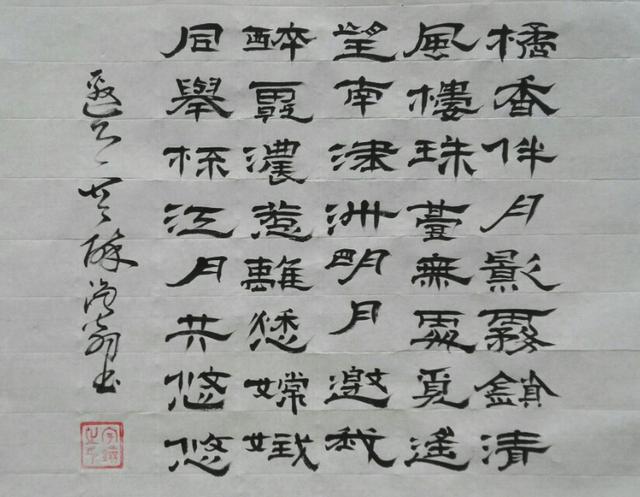 橘香伴月影霧鎖清
風樓珠臺無處覓遙
望南津洲明月邀我
醉霞濃惹離愁嫦娥
同舉杯江月共悠悠
書